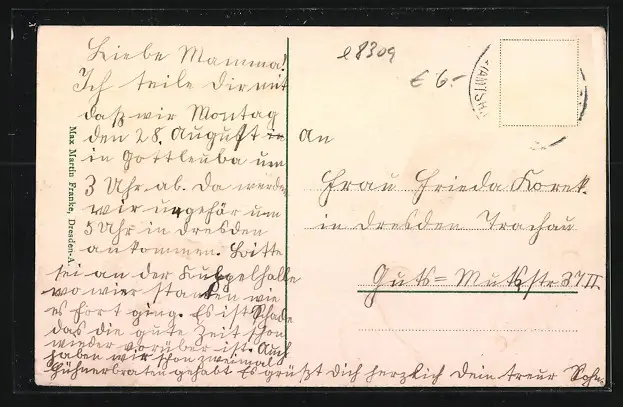 Liebe Mamma!
Ich teile Dir mit
daß wir Montag
den 28. August
in Gottleuba um
3 Uhr ab. Da werden
wir ungefär um
5 Uhr in Dresden
ankommen. Bitte
sei an der Kuppelhalle
wo wier standen wie
es fort ging. Es ist Schade
das die gute Zeit schon
wieder vorüber ist. Auch
haben wir schon zweimal
Hühnerbraten gehabt Es grüßt Dich herzlich Dein treur Sohn.
Max Martin Franke, Dresden-A.
e8309
€ 6.-
An
Frau Frieda Korek.
in Dresden Trachau
Guts=Mutsstr. 37 II